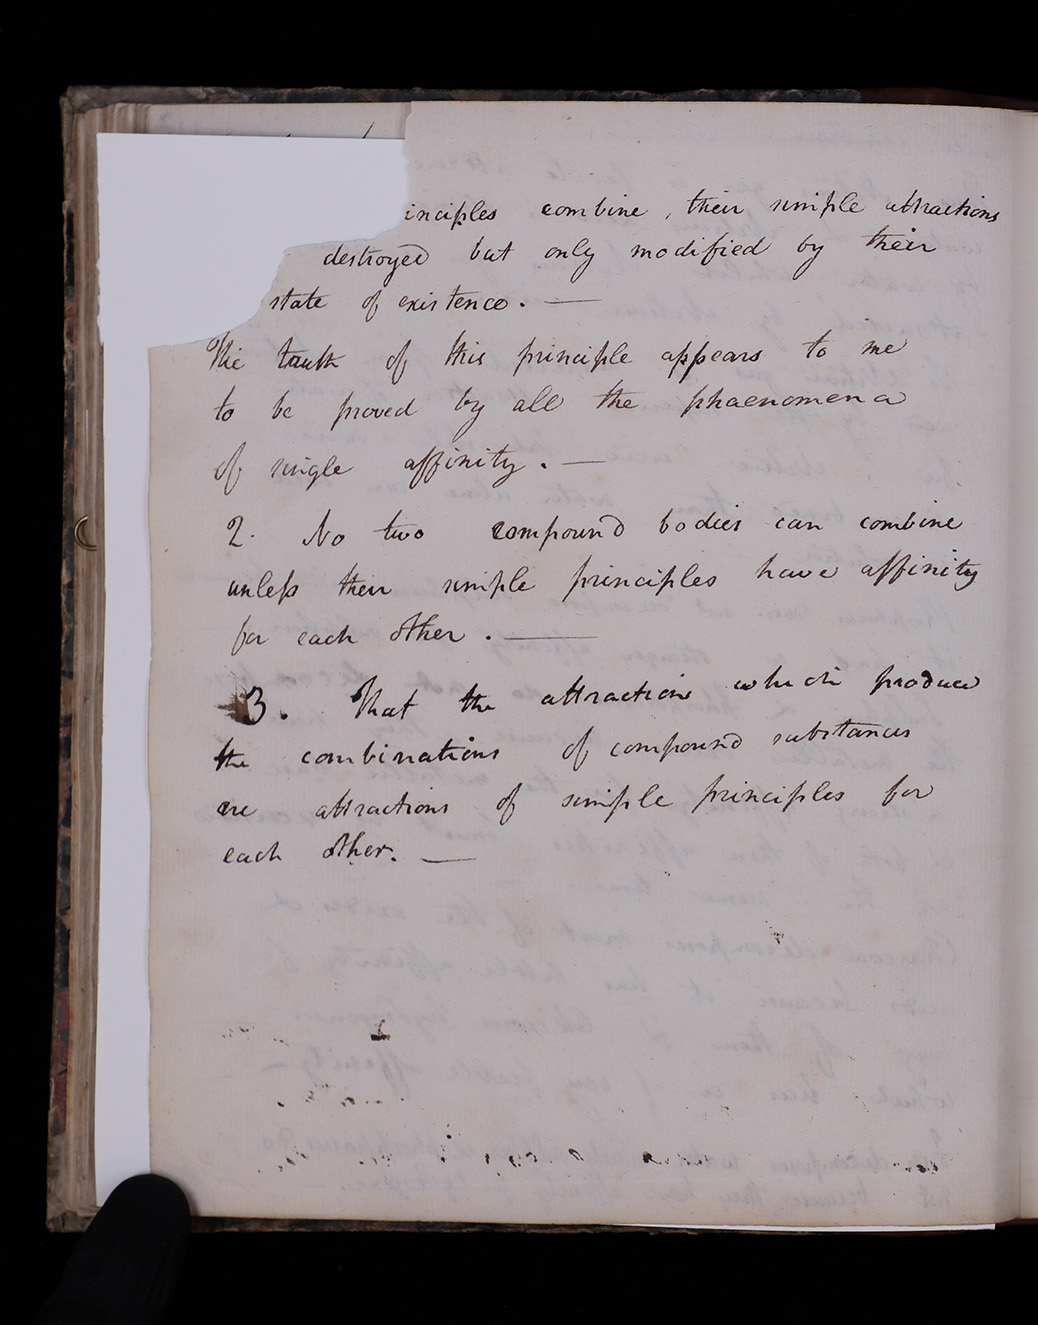 inciples combine, their simple attractions
destroyed but only modified by their
state of existence. —
The truth of this principle appears to me
to be proved by all the phaenomena
of single affinity. —
2. No two compound bodies can combine
unless their simple principles have affinity
for each other. —
3. That the attractions which produce
the combinations of compound substances
are attractions of simple principles for
each other. —